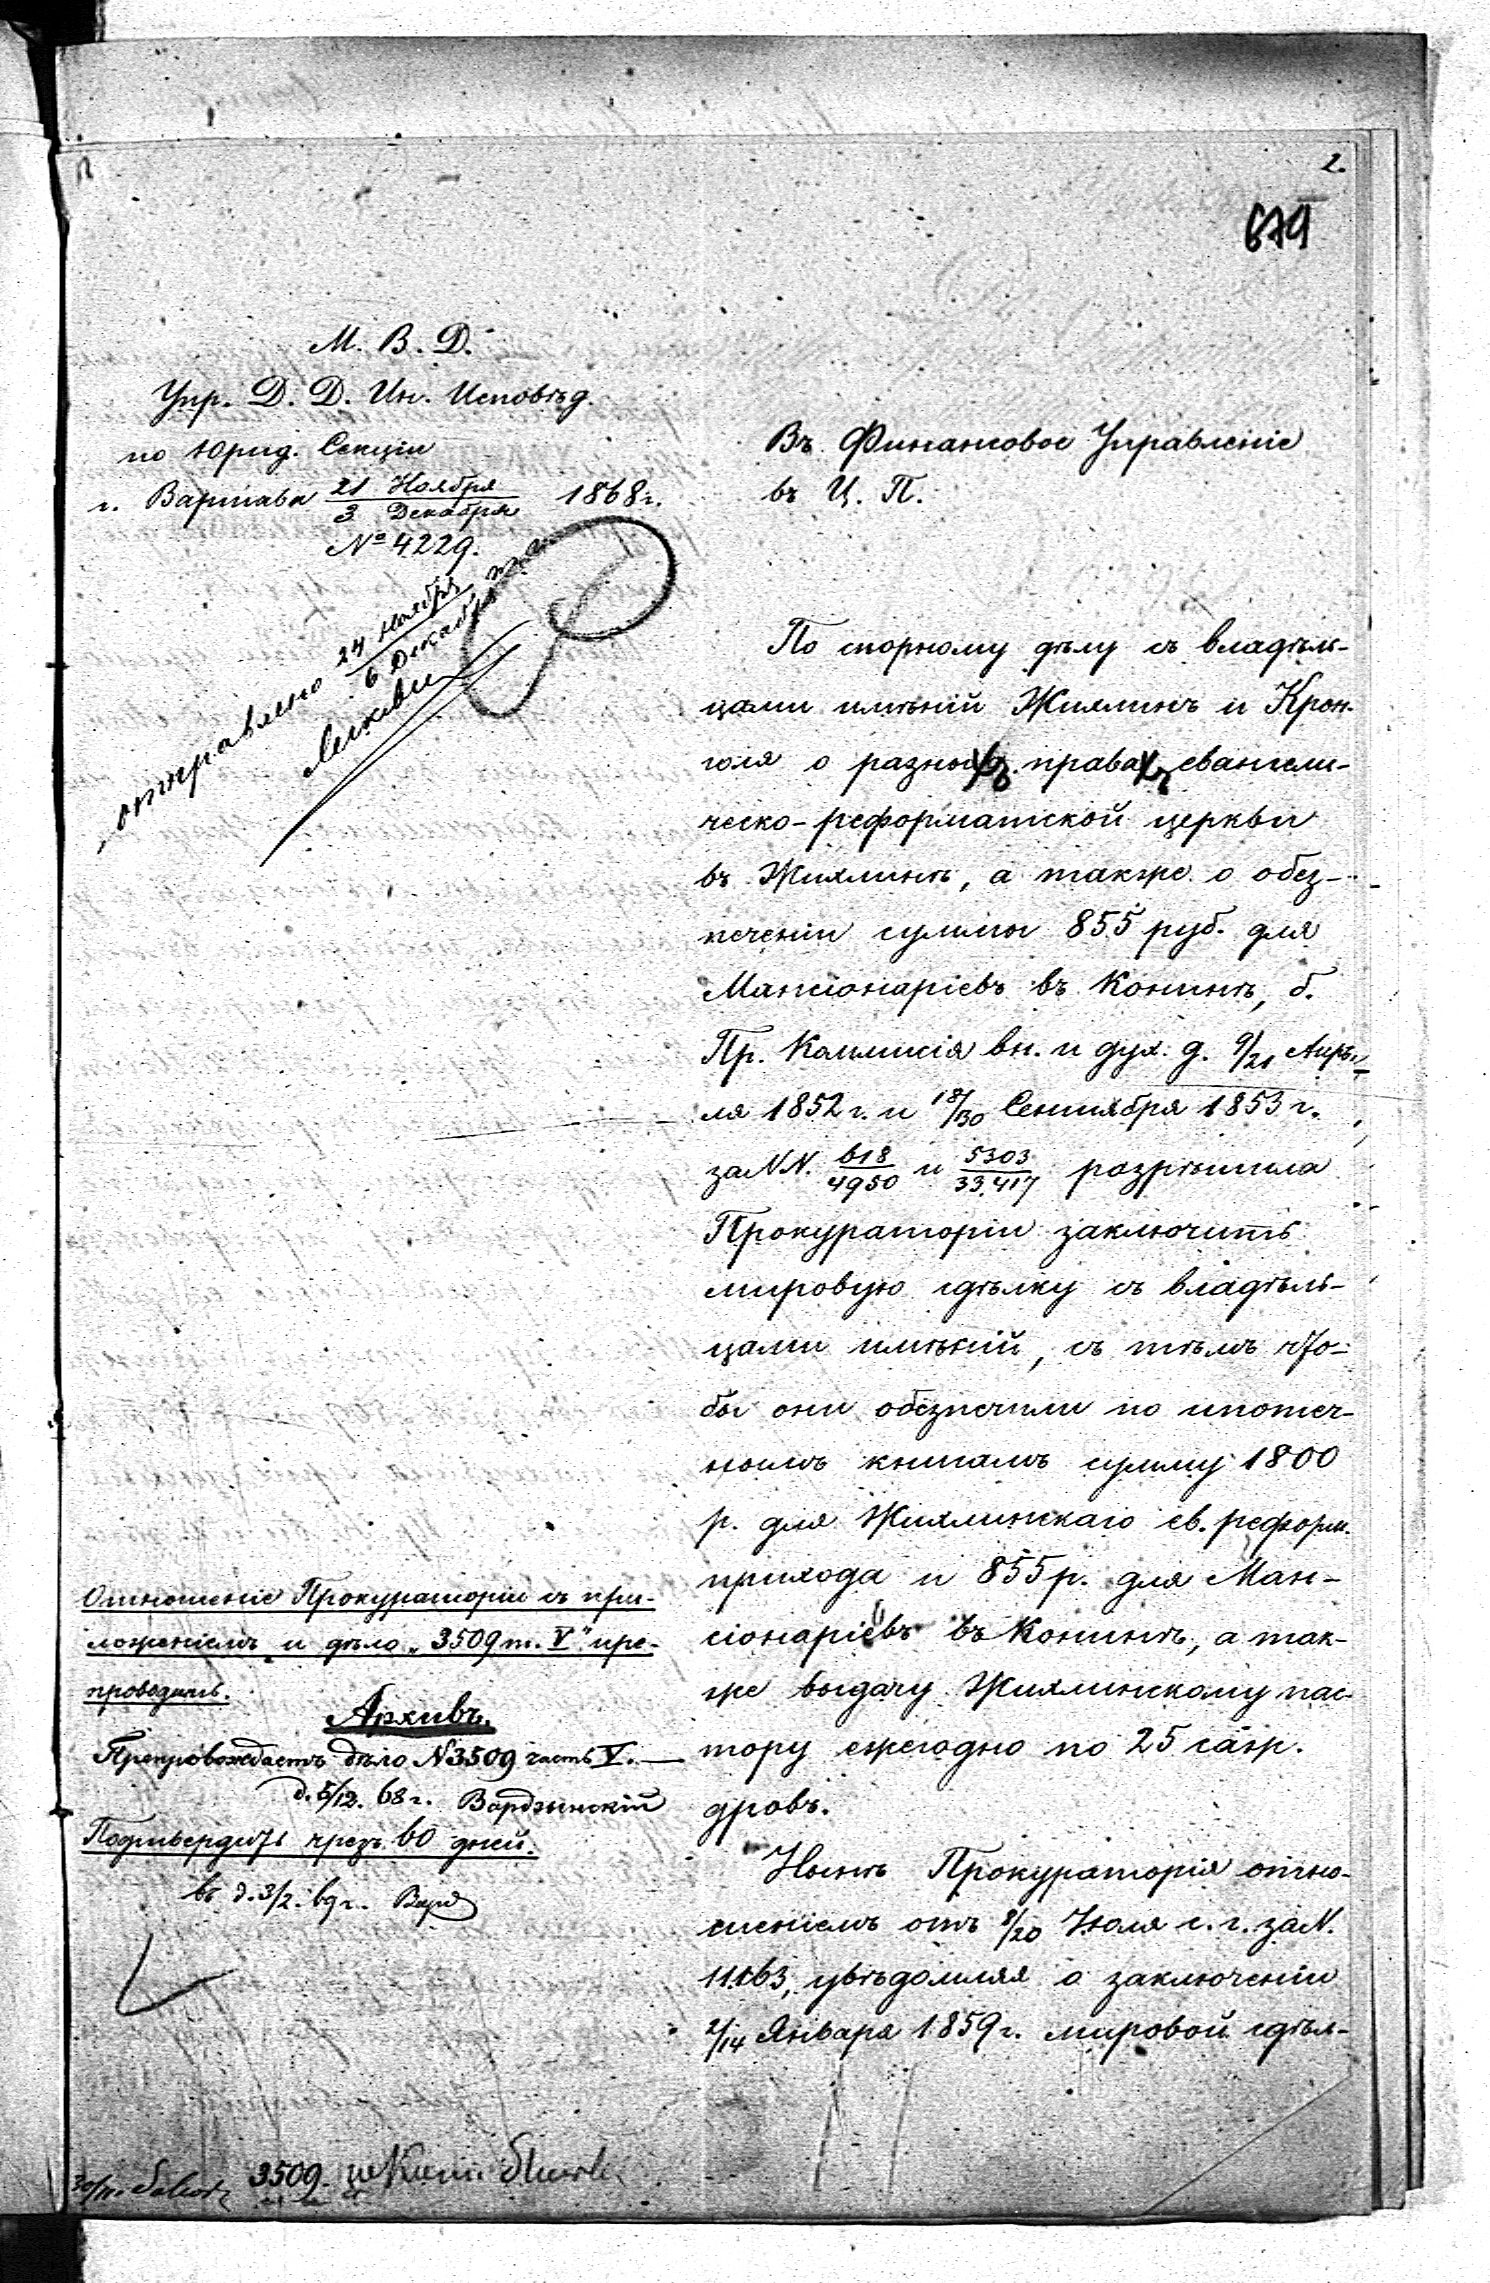 2.
679
М. В. Д.
Упр. Д. Д. Ин. Исповѣд.
по Юрид. Секціи
г. Варшава 21 Ноября / 3 Декабря 1868 г.
№ 4229.
отправлено 24 Ноября / 6 Декаб
Въ Финансовое Управленіе
въ Ц. П.
По спорному дѣлу съ владѣль-
цами имѣній Жихлинъ и Крон-
поля о разныхъ правахъ евангели-
ческо-реформатской церкви
въ Жихлинѣ, а также о обез-
печеніи суммы 855 руб. для
Мансіонаріевъ въ Конинѣ, б.
Пр. Коммисія вн. и дух. д. 9/21 Апрѣ-
ля 1852 г. и 18/30 Сентября 1853 г.
за NN. 618/4950 и 5303/33,417 разрѣшила
Прокураторіи заключить
мировую сдѣлку съ владѣль-
цами имѣній, съ тѣмъ что-
бы они обезпечили по ипотеч-
нымъ книгамъ сумму 1800
р. для Жихлинскаго ев. реформ.
прихода и 855 р. для Ман-
сіонаріевъ въ Конинѣ, а так-
же выдачу Жихлинскому пас-
тору ежегодно по 25 саж.
дровъ.
Нынѣ Прокураторія отно-
шеніемъ отъ 8/20 Іюля с. г. за N.
11163, увѣдомляя о заключеніи
2/14 Января 1859 г. мировой сдѣл-
Отношеніе Прокураторіи съ при-
ложеніемъ и дѣло „3509 т. V" пре-
проводить.
Архивъ.
Препровождаетъ дѣло N 3509 часть V. —
д. 5/12. 68 г.
Подтвердить чрезъ 60 дней.
въ д. 3/2. 69 г.
3509.